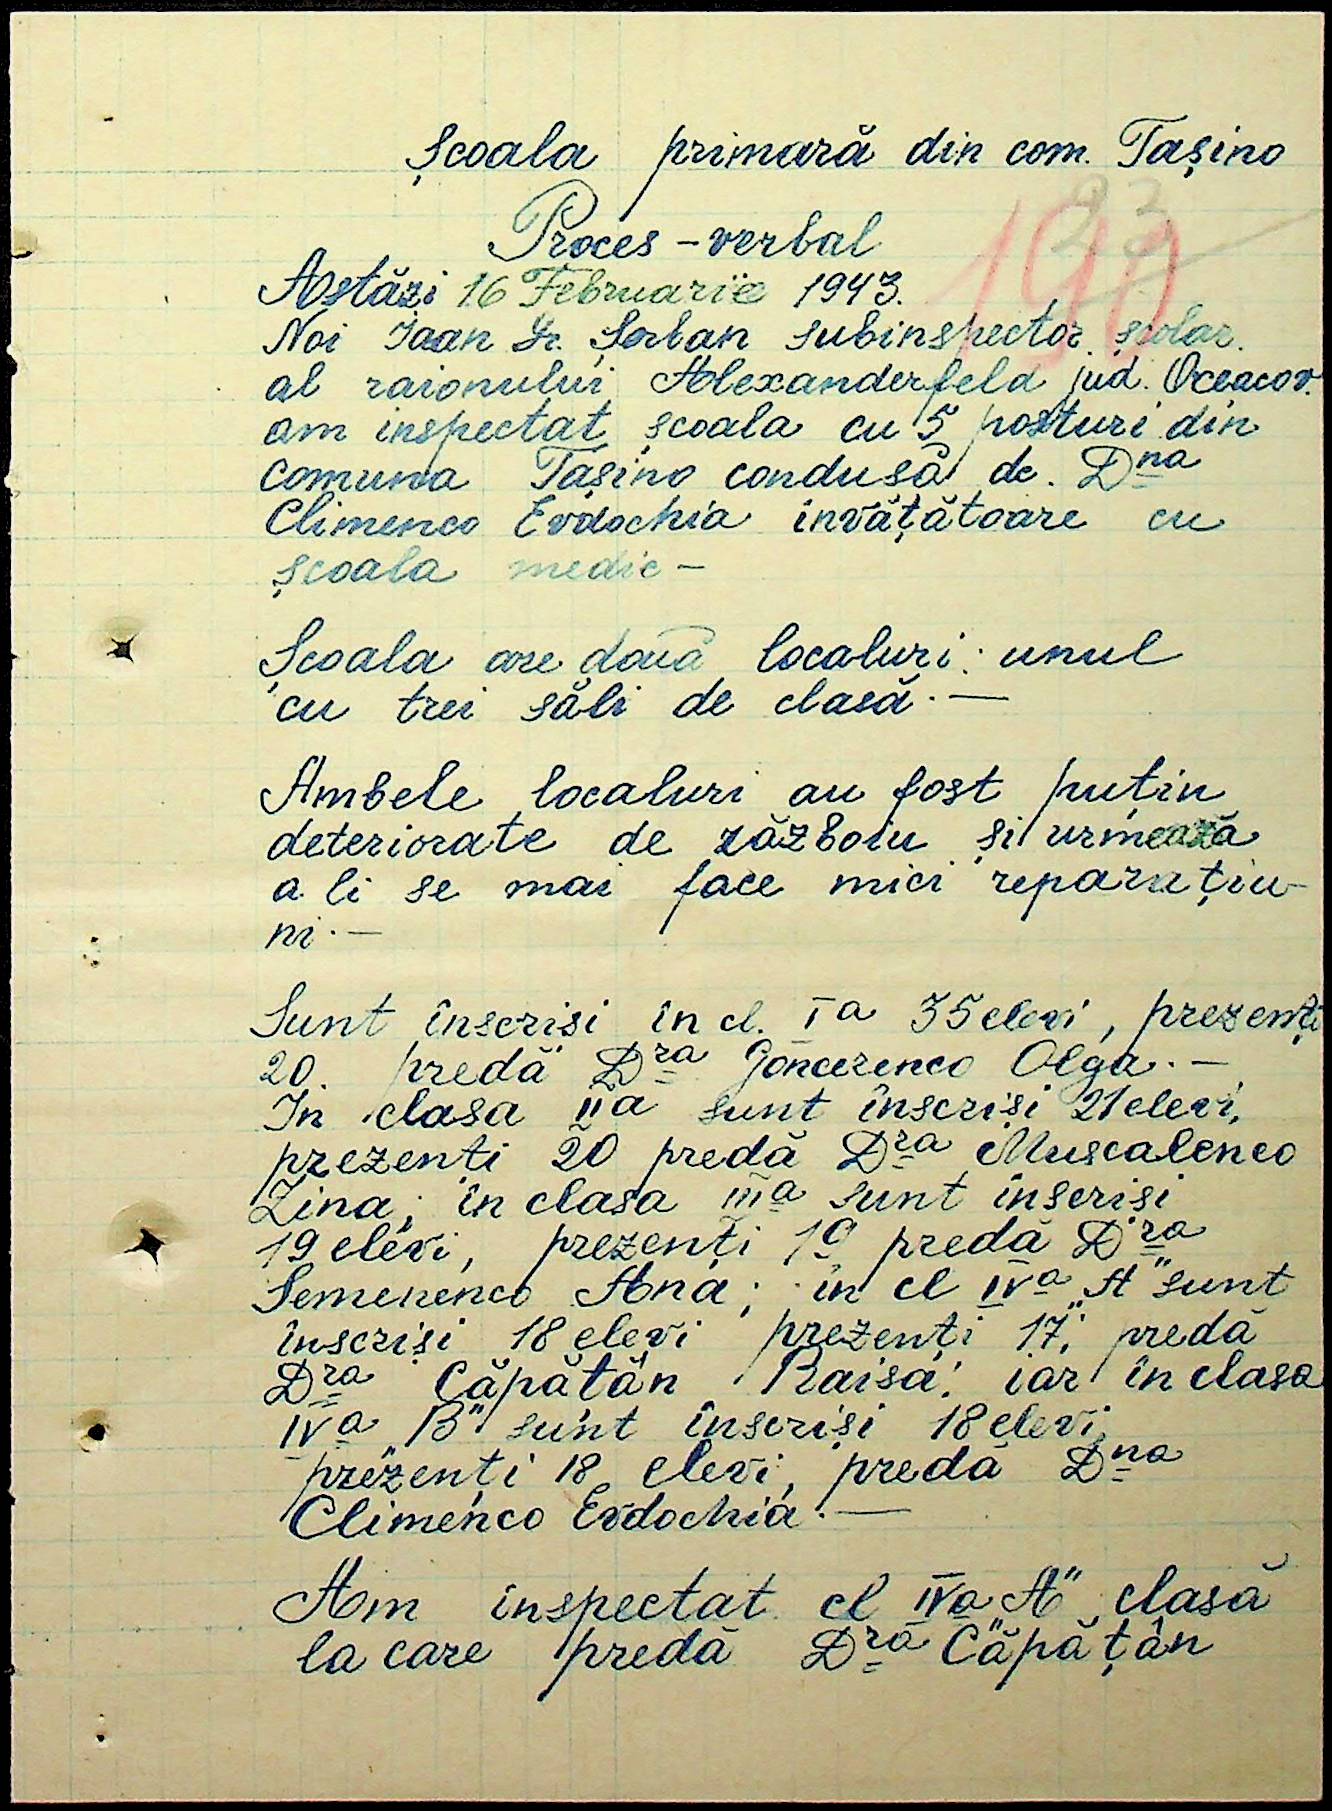 Școala primară din com. Tașino
23
190
Proces-verbal
Astăzi 16 Februarie 1943.
Noi Ioan Gr. Șerban subinspector școlar
al raionului Alexanderfeld jud. Oceacov.
am inspectat școala cu 5 posturi din
comuna Tașino condusă de. Dna
Climenco Evdochia invățătoare cu
școala medie —
Școala are două localuri: unul
cu trei săli de clasă. —
Ambele localuri au fost puțin
deteriorate de război și urmează
a li se mai face mici reparațiu-
ni. —
Sunt înscriși în cl. Ia 35 elevi, prezenți
20. predă Dra Goncerenco Olga. —
In clasa IIa sunt înscriși 21 elevi,
prezenți 20 predă Dra Muscalenco
Zina; în clasa IIIa sunt înscriși
19 elevi, prezenți 19 predă Dra
Semenenco Ana; in cl IVa „A" sunt
înscriși 18 elevi prezenți 17; predă
Dra Căpățân Raisa; iar în clasa
IVa „B" sunt înscriși 18 elevi,
prezenți 18 elevi, predă Dna
Climenco Evdochia. —
Am inspectat cl IVa „A" clasă
la care predă Dra Căpățân